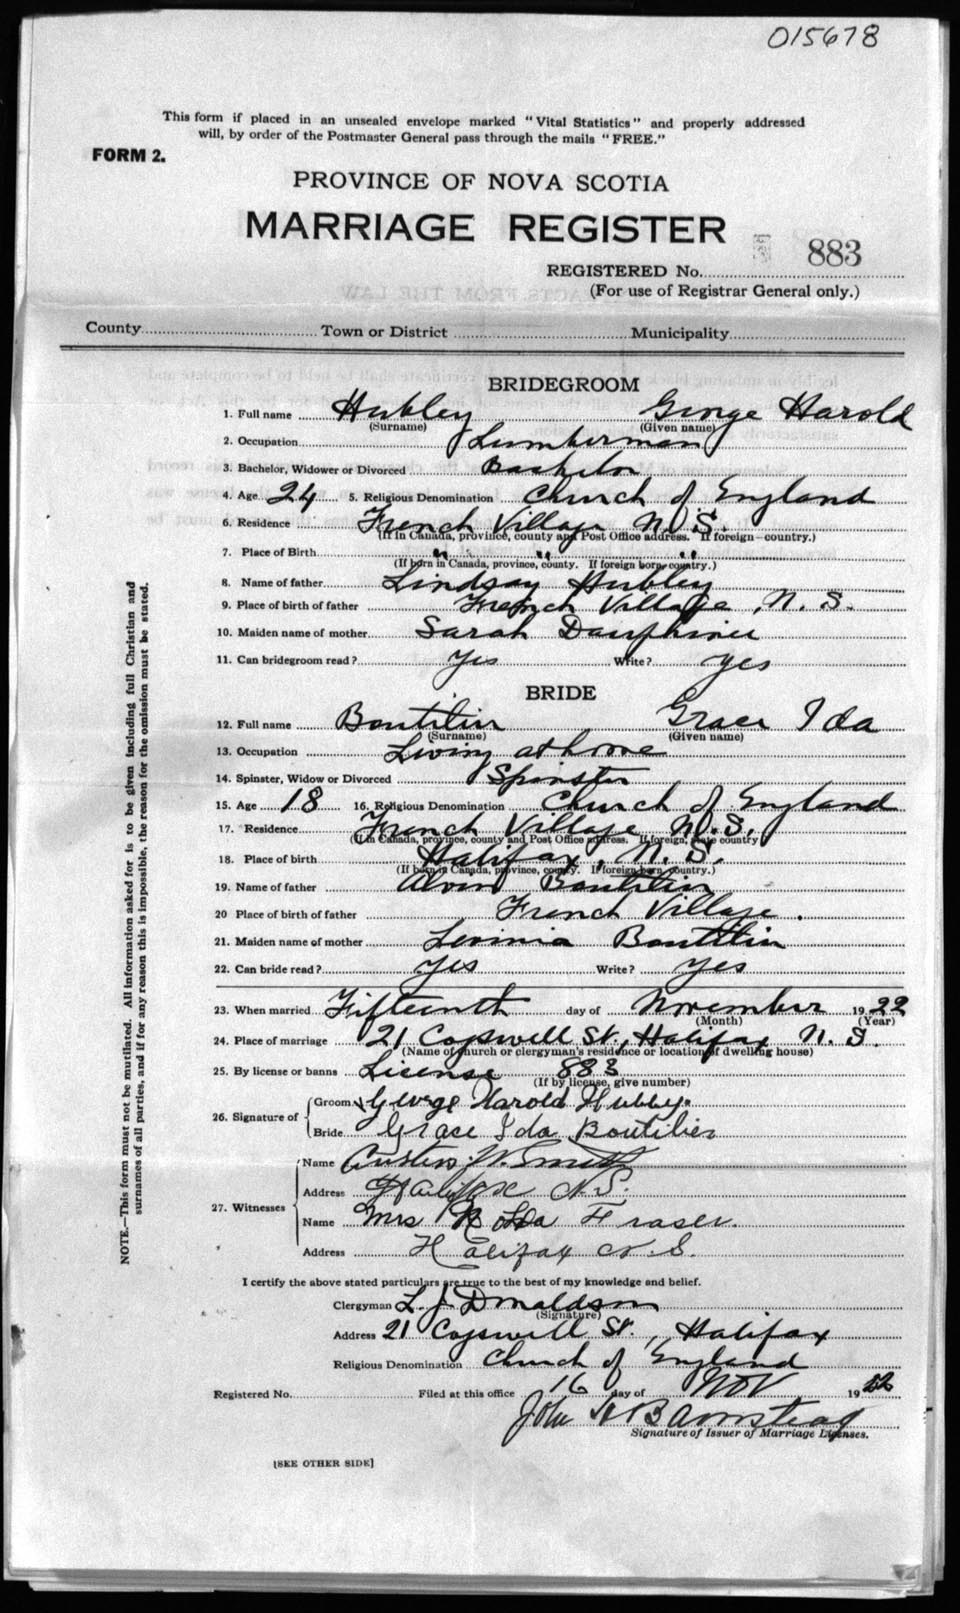 015678
This form if placed in an unsealed envelope marked "Vital Statistics" and properly addressed
will, by order of the Postmaster General pass through the mails "FREE."
FORM 2.
PROVINCE OF NOVA SCOTIA
MARRIAGE REGISTER
883
REGISTERED No.
(For use of Registrar General only.)
County Town or District Municipality
BRIDEGROOM
1. Full name Hubley George Harold
(Surname) (Given name)
2. Occupation Lumberman
3. Bachelor, Widower or Divorced Bachelor
4. Age 24 5. Religious Denomination Church of England
6. Residence French Village N.S.
(If in Canada, province, county and Post Office address. If foreign—country.)
7. Place of Birth " " "
(If born in Canada, province, county. If foreign born, country.)
8. Name of father Lindsay Hubley
9. Place of birth of father French Village, N.S.
10. Maiden name of mother Sarah Dauphinee
11. Can bridegroom read? yes Write? yes
BRIDE
12. Full name Boutilier Grace Ida
(Surname) (Given name)
13. Occupation Living at home
14. Spinster, Widow or Divorced Spinster
15. Age 18 16. Religious Denomination Church of England
17. Residence French Village N.S.
(If in Canada, province, county and Post Office address. If foreign, state country
18. Place of birth Halifax, N.S.
(If born in Canada, province, county. If foreign born country.)
19. Name of father Alvin Boutilier
20 Place of birth of father French Village.
21. Maiden name of mother Levinia Boutilier
22. Can bride read? yes Write? yes
23. When married Fifteenth day of November 1922
(Month) (Year)
24. Place of marriage 21 Cogswell St., Halifax N.S.
(Name of church or clergyman's residence or location of dwelling house)
25. By license or banns License 883
(If by license, give number)
26. Signature of Groom George Harold Hubley.
Bride Grace Ida Boutilier
27. Witnesses
Name W. Smith
Address Halifax N.S.
Name Mrs Fraser.
Address Halifax N.S.
I certify the above stated particulars are true to the best of my knowledge and belief.
Clergyman L. J. Donaldson
(Signature)
Address 21 Cogswell St., Halifax
Religious Denomination Church of England
Registered No. Filed at this office 16 day of Nov 1922
John
Signature of Issuer of Marriage Licenses.
[SEE OTHER SIDE]
NOTE.—This form must not be mutilated. All information asked for is to be given including full Christian and
surnames of all parties, and if for any reason this is impossible, the reason for the omission must be stated.